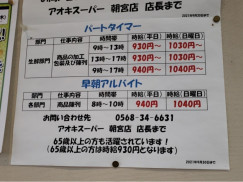 アオキスーパー 朝宮店 店長まで
パートタイマー
部門 仕事内容 時間帯 時給(平日) 時給(日曜日)
生鮮部門 商品の加工 包装及び陳列 9時~13時 930円~ 1030円~
13時~17時 930円~ 1030円~
9時~17時 930円~ 1030円~
早朝アルバイト
部門 仕事内容 時間帯 時給(平日) 時給(日曜日)
各部門 商品陳列 8時~10時 940円 1040円
お問い合わせ先 0568-34-6631
アオキスーパー 朝宮店 店長まで
65歳以上の方も活躍されています!
(65歳以上の方は時給930円となります)